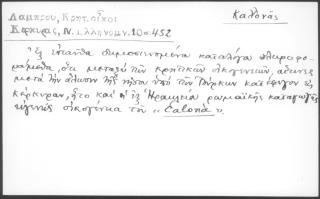 Καλονᾶς
Λάμπρου, Κρητ. οἶκοι
Κερκύρας, Ν. Ἑλληνομν. 10ος 452
Ἐξ δημοσιευομένου καταλόγου πληροφο-
ρούμεθα, ὅτι μεταξὺ τῶν κρητικῶν οἰκογενειῶν, αἵτινες
μετὰ τὴν ἅλωσιν τῆς νήσου ὑπὸ τῶν Τούρκων κατέφυγον εἰς
Κέρκυραν, ἦτο καὶ ἡ ἐξ Ἡρακλείου ρωμαϊκῆς καταγωγῆς
εὐγενὴς οἰκογένεια τῶν «Calonà».